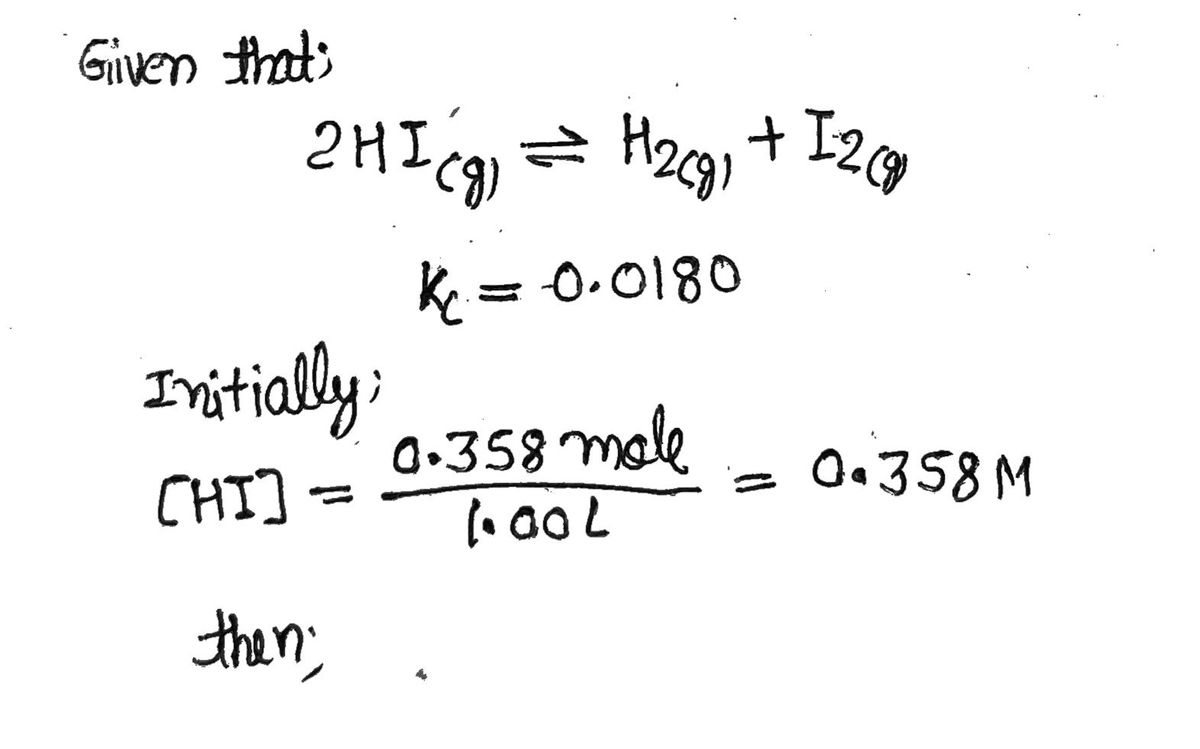 Given that;
2HI(g) ⇌ H2(g) + I2(g)
Kc = 0.0180
Initially;
[HI] = 0.358 mole / 1.00 L = 0.358 M
then;